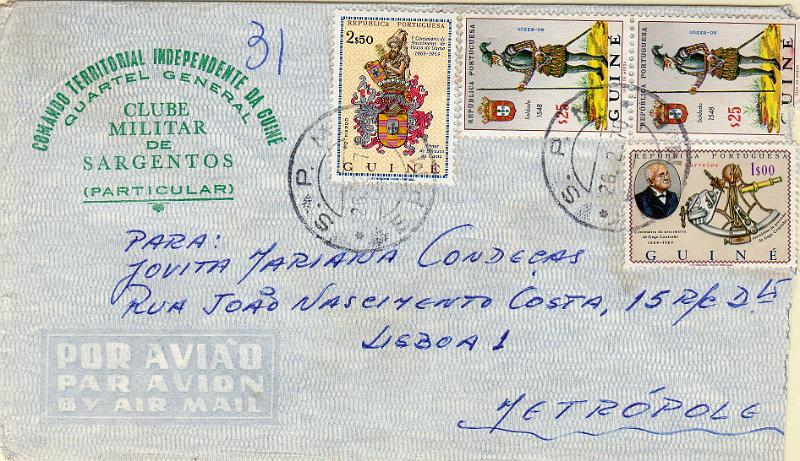 31
COMANDO TERRITORIAL INDEPENDENTE DA GUINÉ
QUARTEL GENERAL
CLUBE
MILITAR
DE
SARGENTOS
(PARTICULAR)
2$50
REPÚBLICA PORTUGUESA
1469-1969
GUINÉ
REPÚBLICA PORTUGUESA
Soldado
1548
$25
GUINÉ
REPÚBLICA PORTUGUESA
Soldado
1548
$25
GUINÉ
REPÚBLICA PORTUGUESA
correios
1$00
Centenário do nascimento
de Gago Coutinho
1869-1969
GUINÉ
S.P.M.
S.P.M.
PARA:
JOVITA MARIANA CONDEÇAS
RUA JOÃO NASCIMENTO COSTA, 15 R/C Dto
LISBOA 1
METRÓPOLE
POR AVIÃO
PAR AVION
BY AIR MAIL